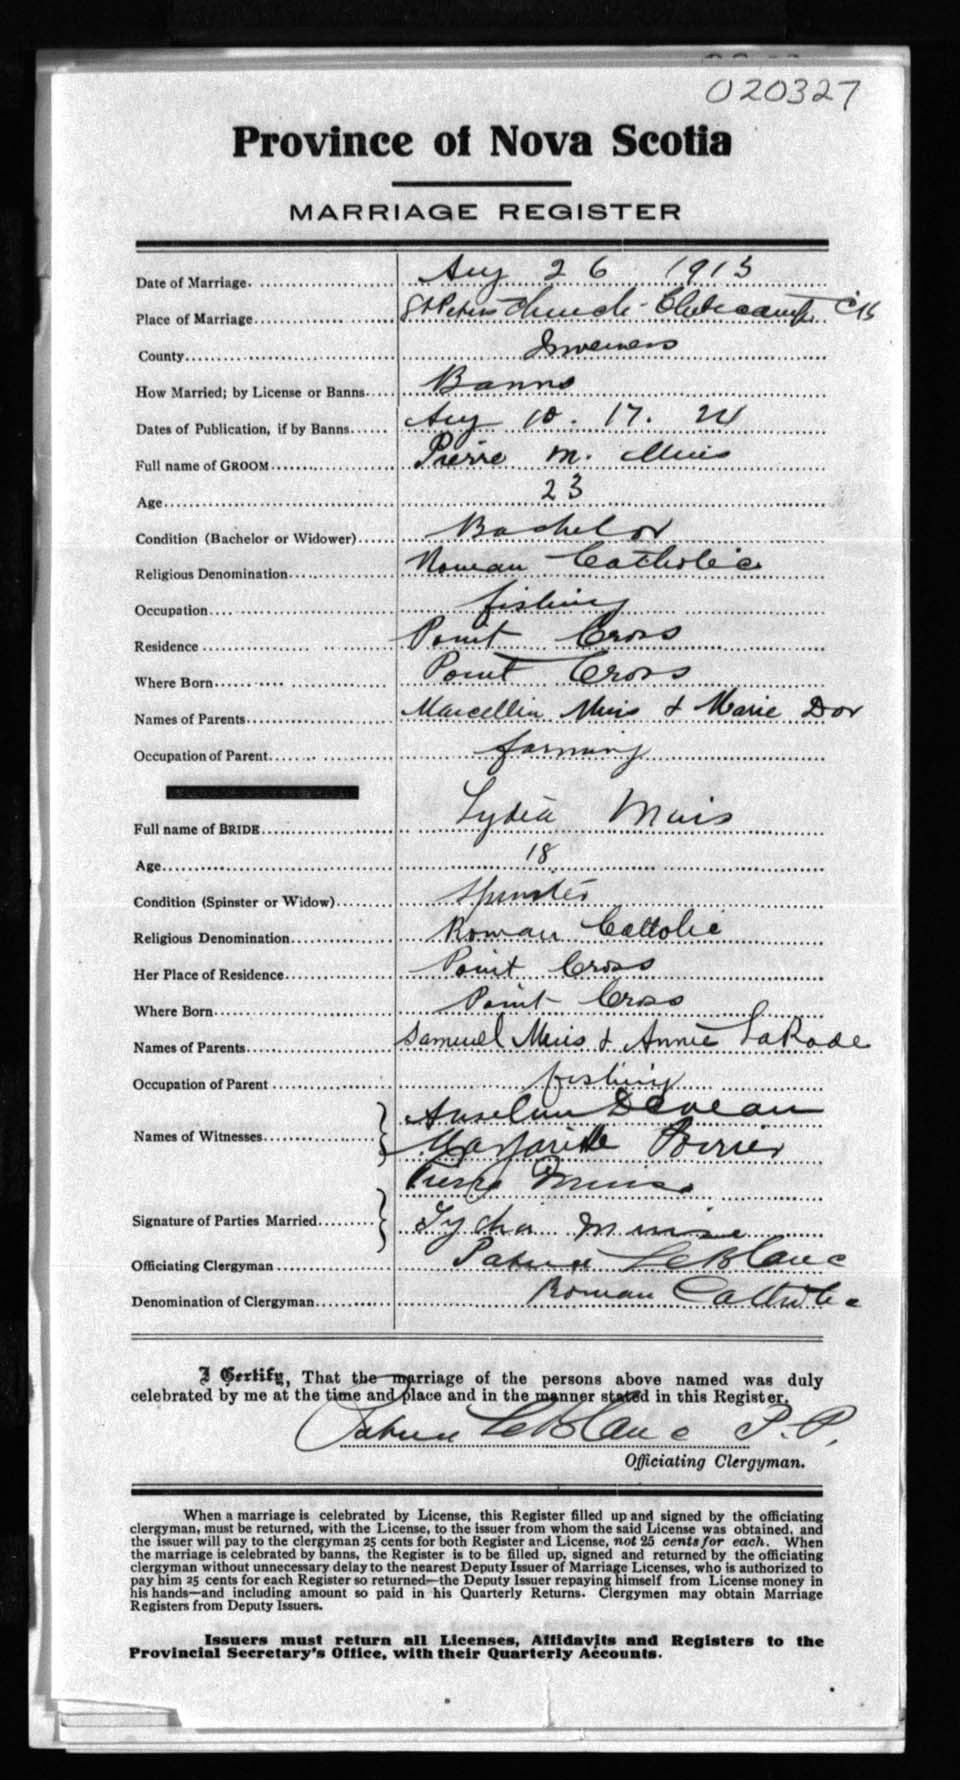 020327
Province of Nova Scotia
MARRIAGE REGISTER
Date of Marriage. Aug 26 1913
Place of Marriage St Peters Church - Cheticamp CB
County Inverness
How Married; by License or Banns Banns
Dates of Publication, if by Banns Aug 10. 17. 24
Full name of GROOM Pierre M. Muis
Age 23
Condition (Bachelor or Widower) Bachelor
Religious Denomination Roman Catholic
Occupation fishing
Residence Point Cross
Where Born Point Cross
Names of Parents Marcellin Muis & Marie Dor
Occupation of Parent farming
Full name of BRIDE Lydia Muis
Age 18
Condition (Spinster or Widow) Spinster
Religious Denomination Roman Cattolic
Her Place of Residence Point Cross
Where Born Point Cross
Names of Parents Samuel Muis & Annie LaRade
Occupation of Parent fishing
Names of Witnesses Anselm Deveau
Margarette Poirier
Pierre Muise
Signature of Parties Married Lydia Muise
Officiating Clergyman LeBlanc
Denomination of Clergyman Roman Catholic
I Certify, That the marriage of the persons above named was duly
celebrated by me at the time and place and in the manner stated in this Register.
LeBlanc P.P.
Officiating Clergyman.
When a marriage is celebrated by License, this Register filled up and signed by the officiating
clergyman, must be returned, with the License, to the issuer from whom the said License was obtained, and
the issuer will pay to the clergyman 25 cents for both Register and License, not 25 cents for each. When
the marriage is celebrated by banns, the Register is to be filled up, signed and returned by the officiating
clergyman without unnecessary delay to the nearest Deputy Issuer of Marriage Licenses, who is authorized to
pay him 25 cents for each Register so returned—the Deputy Issuer repaying himself from License money in
his hands—and including amount so paid in his Quarterly Returns. Clergymen may obtain Marriage
Registers from Deputy Issuers.
Issuers must return all Licenses, Affidavits and Registers to the
Provincial Secretary's Office, with their Quarterly Accounts.